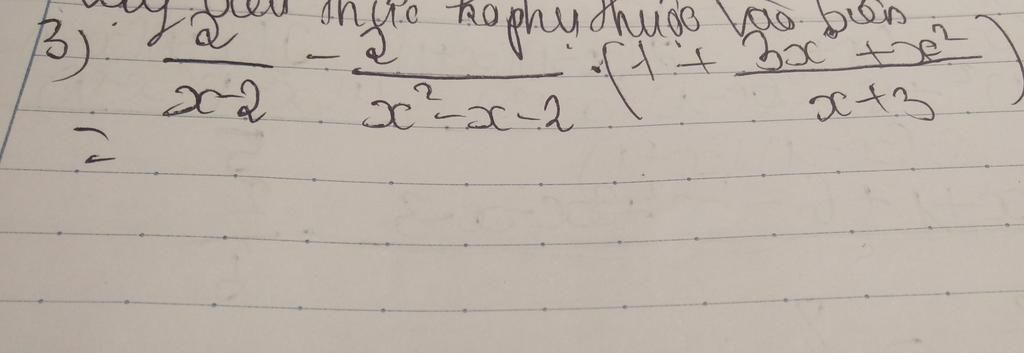 thức ko phụ thuộc vào biến
3) \frac{2}{x-2} - \frac{2}{x^2-x-2} \cdot \left(1 + \frac{3x+x^2}{x+3}\right)
=